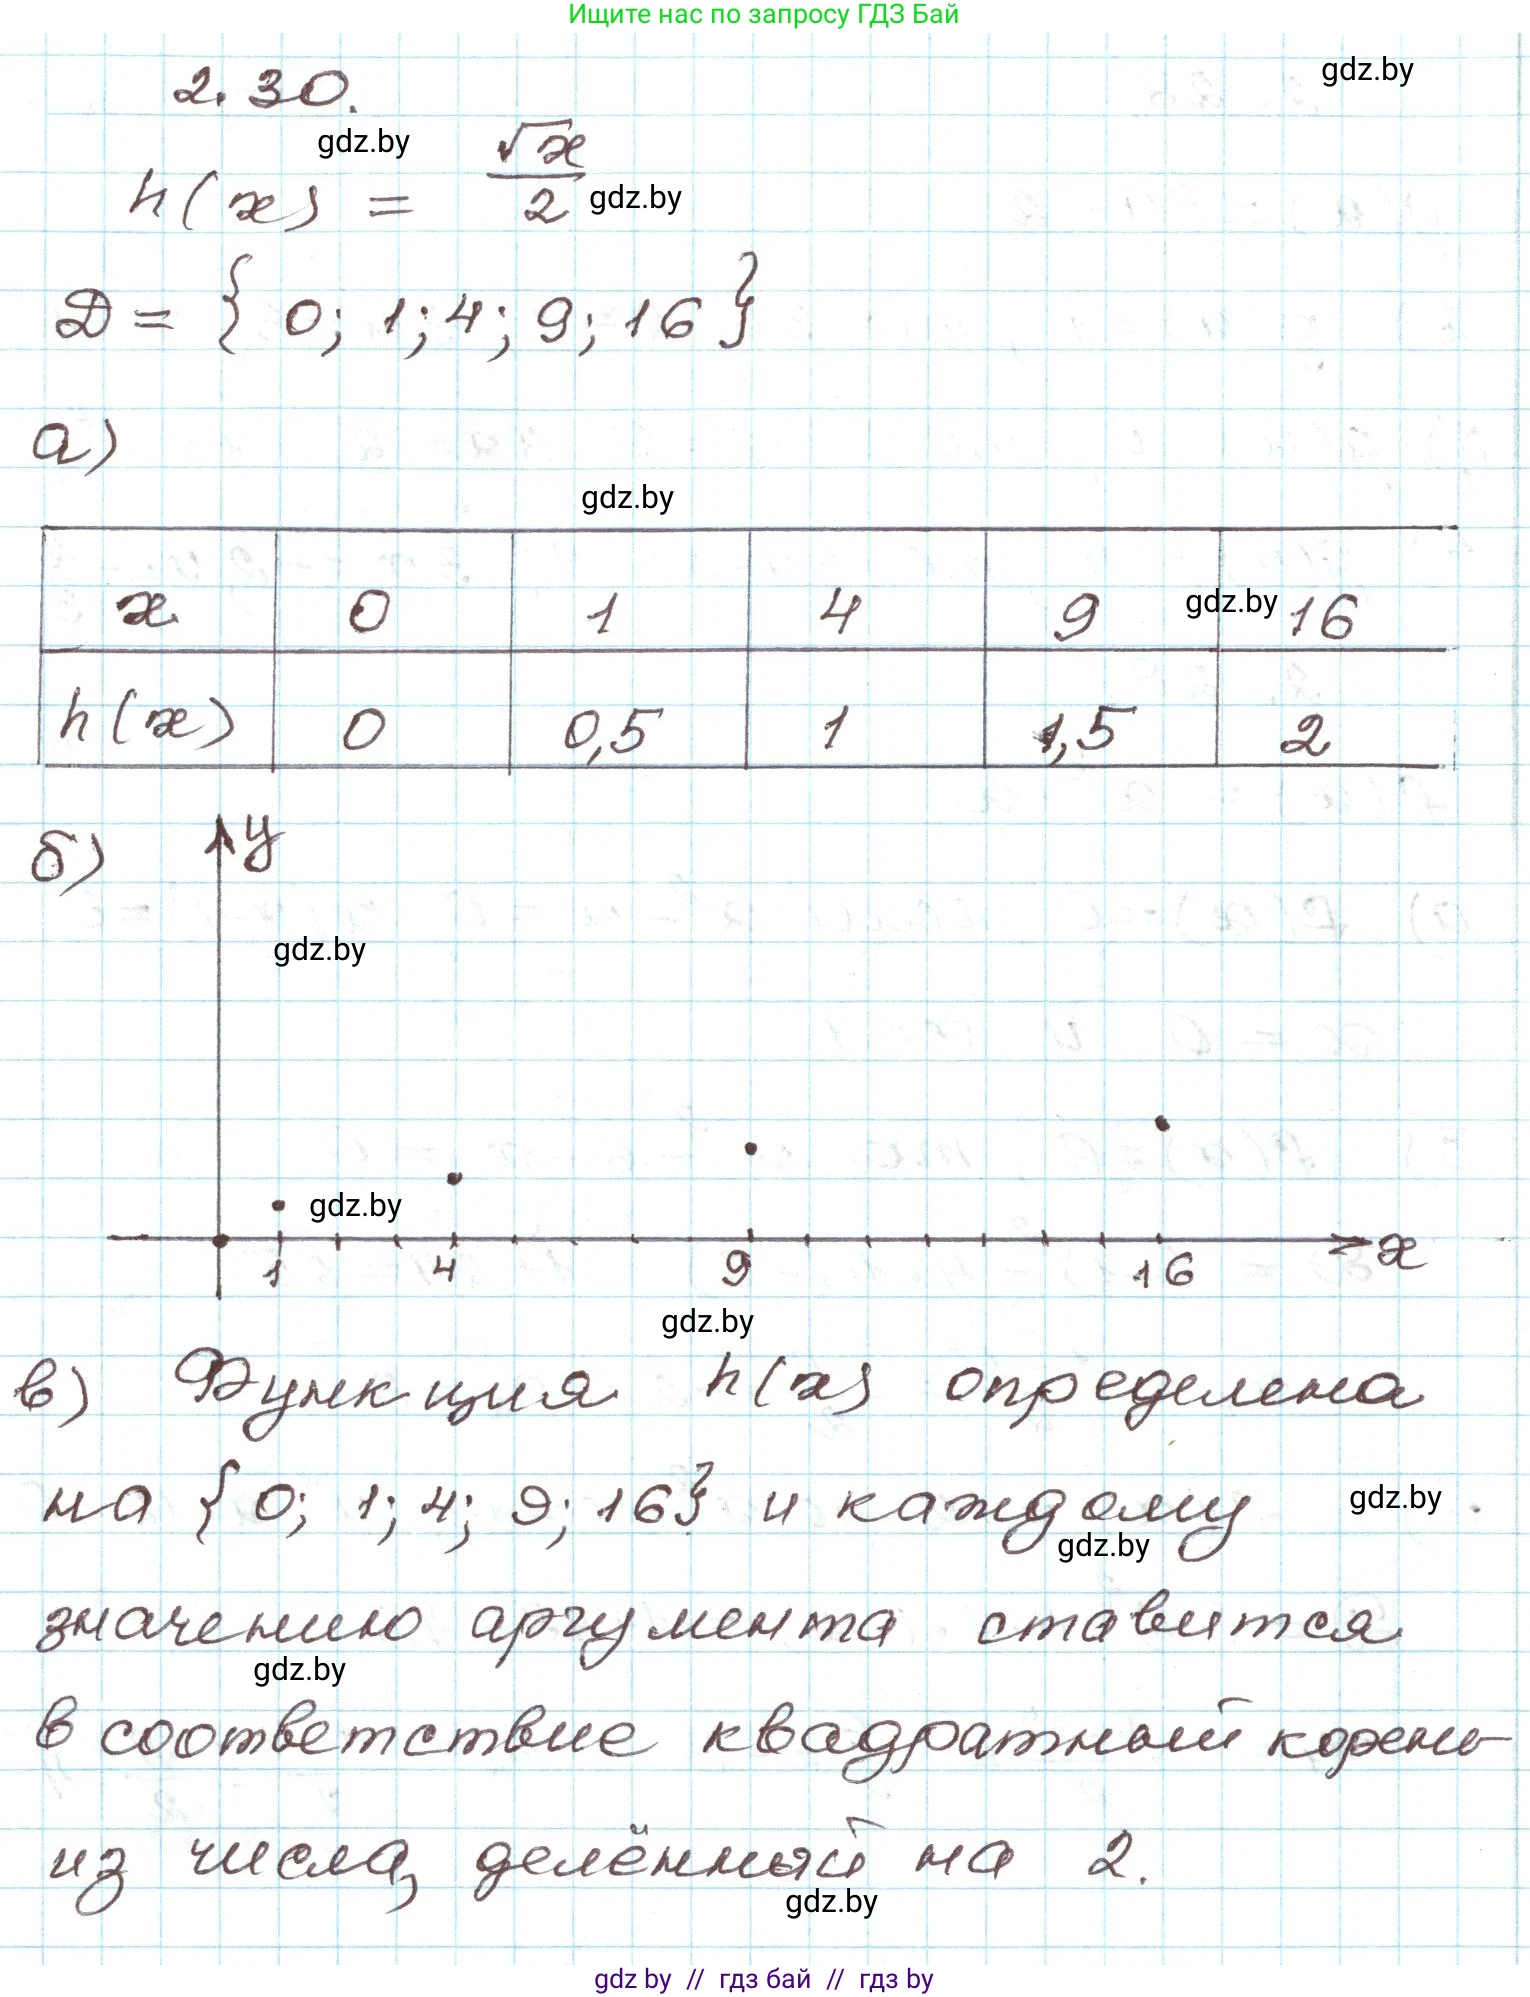 Ищите нас по запросу ГДЗ Бай
gdz.by
2.30.
gdz.by
h(x) = √x/2
gdz.by
Д = { 0; 1; 4; 9; 16 }
а)
gdz.by
x 0 1 4 9 16
gdz.by
h(x) 0 0,5 1 1,5 2
б) y
gdz.by
gdz.by
x
1 4 9 16
gdz.by
в) Функция h(x) определена
на { 0; 1; 4; 9; 16} и каждому
gdz.by
gdz.by
значению аргумента ставится
gdz.by
в соответствие квадратный корень
из числа, делённый на 2.
gdz.by
gdz by // гдз бай // гдз by